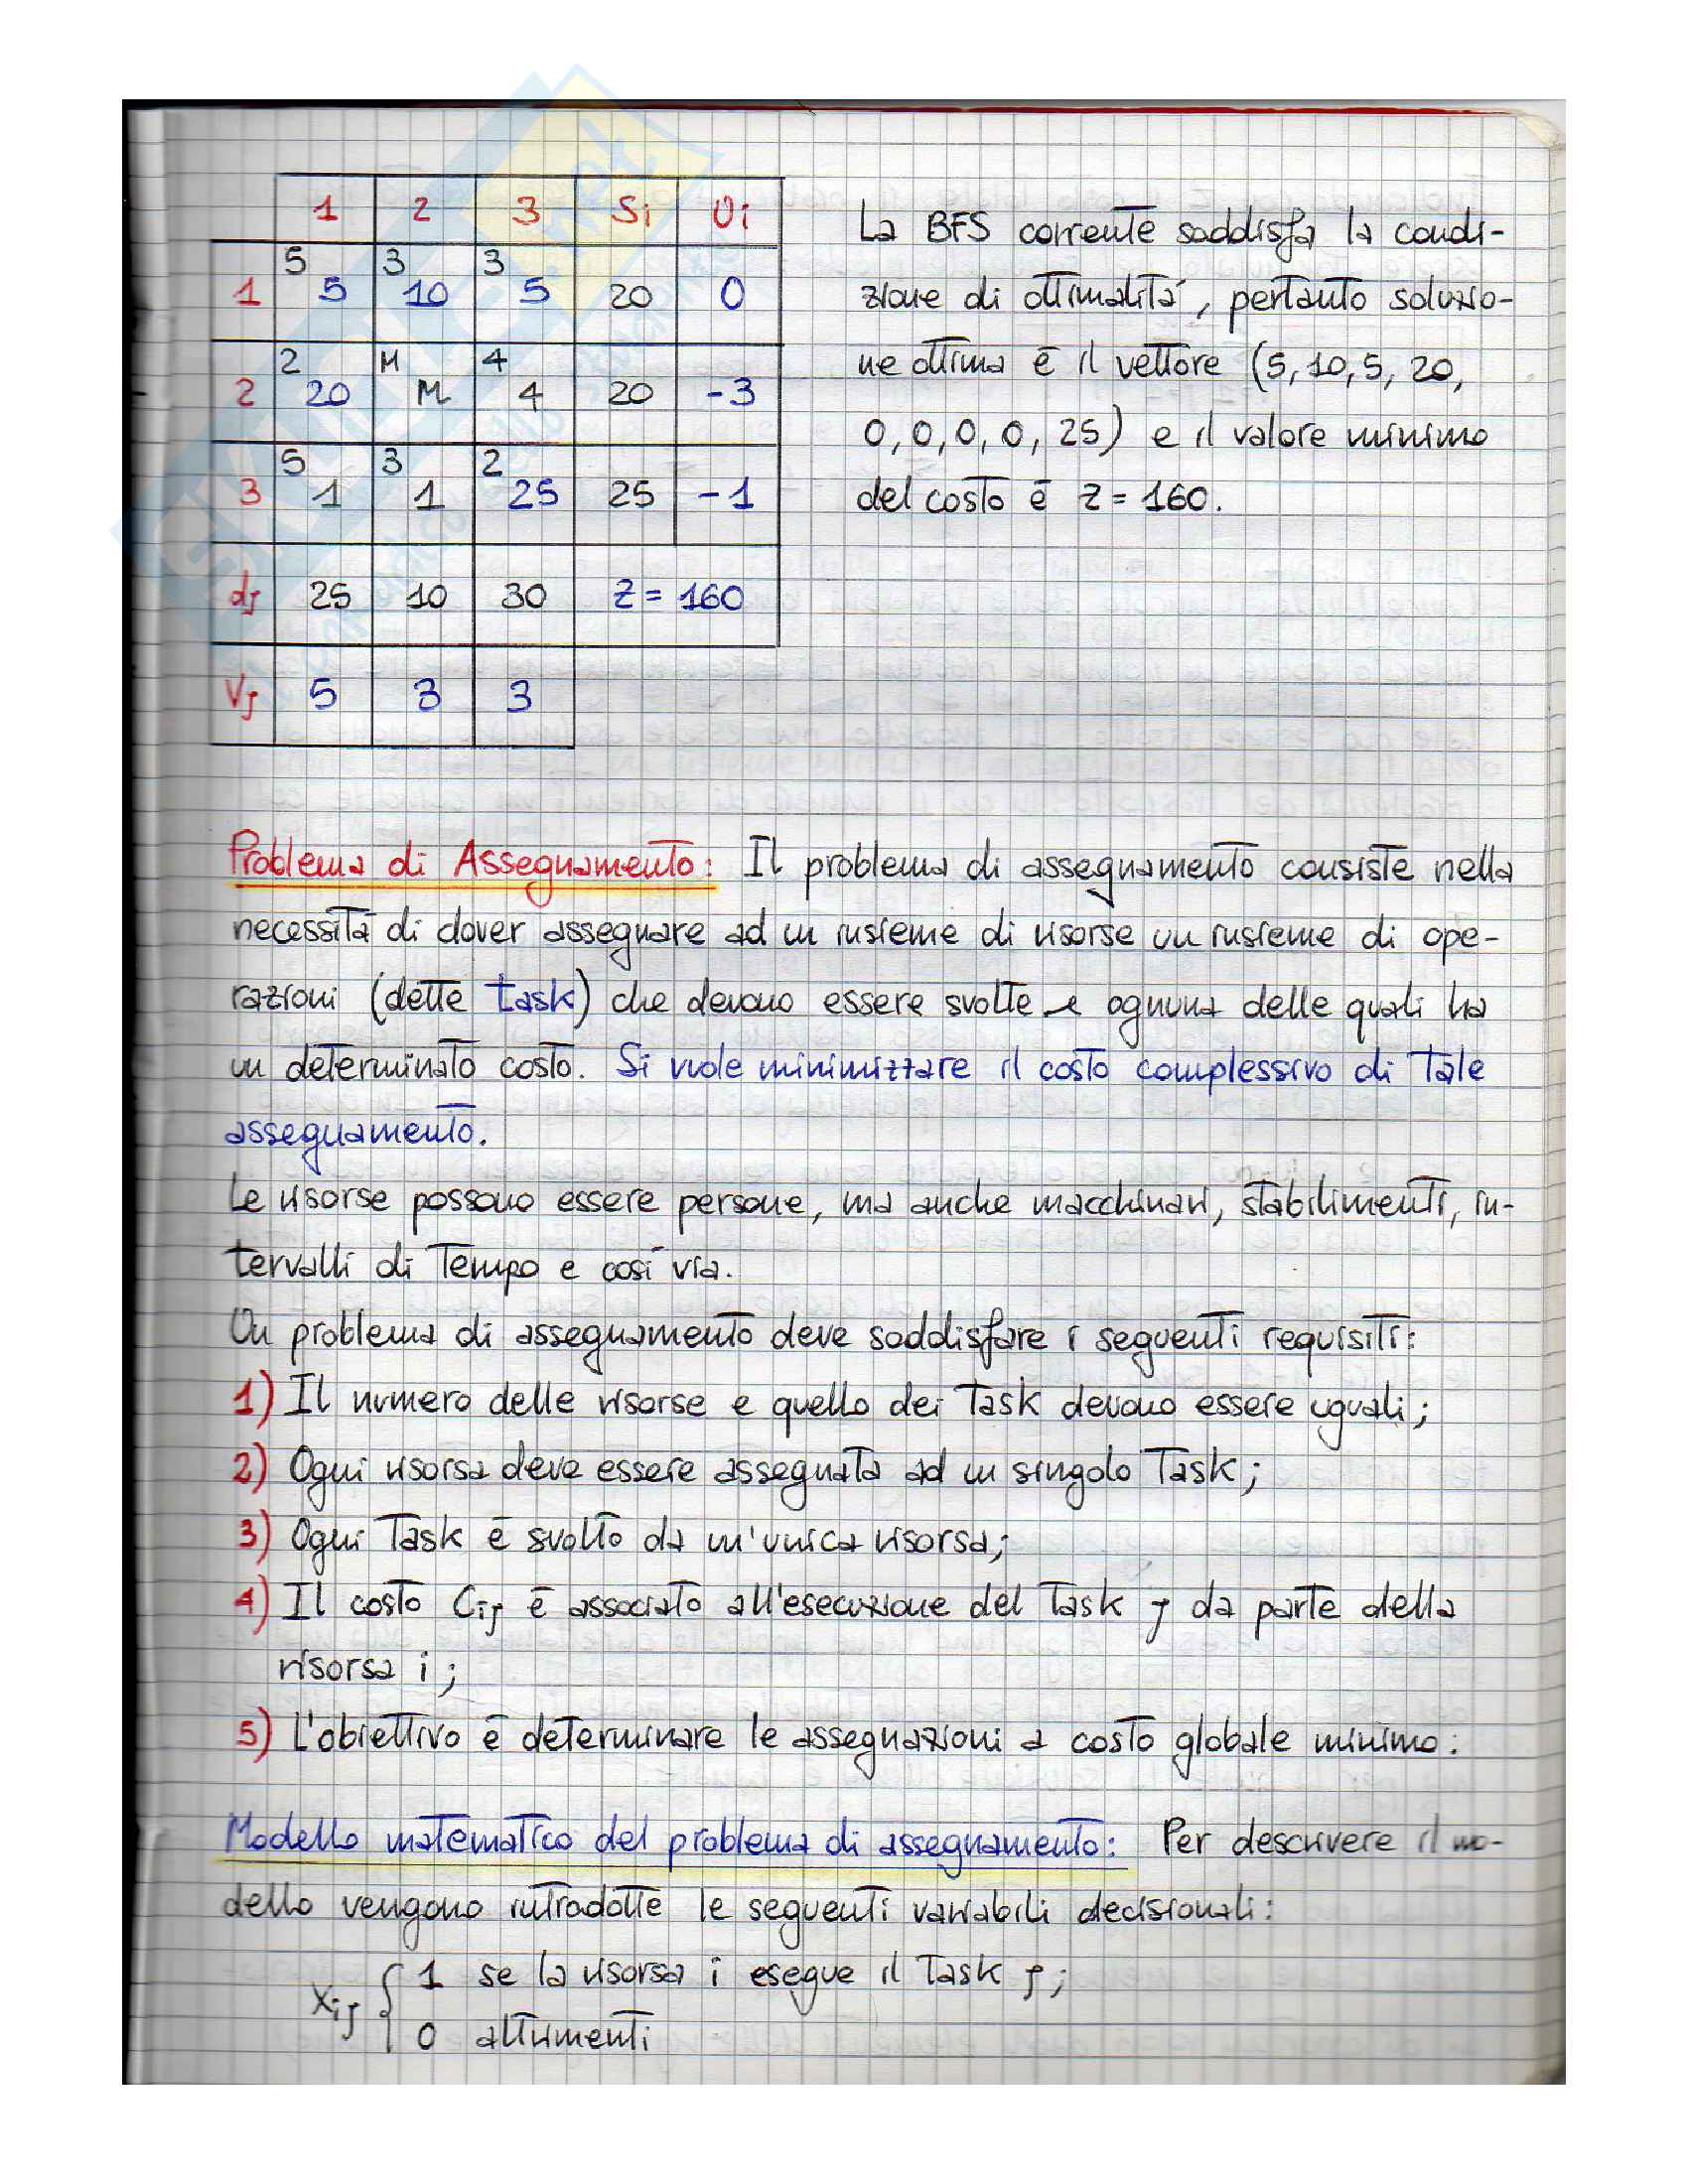 1 2 3 Si Ui
5 3 3
1 5 10 5 20 0
2 M 4
2 20 M 4 20 -3
5 3 2
3 1 1 25 25 -1
dj 25 10 30 Z = 160
Vj 5 3 3
La BFS corrente soddisfa la condi-
zione di ottimalità, pertanto soluzio-
ne ottima è il vettore (5, 10, 5, 20,
0, 0, 0, 0, 25) e il valore minimo
del costo è Z = 160.
Problema di Assegnamento: Il problema di assegnamento consiste nella
necessità di dover assegnare ad un insieme di risorse un insieme di ope-
razioni (dette task) che devono essere svolte e ognuna delle quali ha
un determinato costo. Si vuole minimizzare il costo complessivo di tale
assegnamento.
Le risorse possono essere persone, ma anche macchinari, stabilimenti, in-
tervalli di tempo e così via.
Un problema di assegnamento deve soddisfare i seguenti requisiti:
1) Il numero delle risorse e quello dei task devono essere uguali;
2) Ogni risorsa deve essere assegnata ad un singolo task;
3) Ogni task è svolto da un'unica risorsa;
4) Il costo Cij è associato all'esecuzione del task j da parte della
risorsa i;
5) L'obiettivo è determinare le assegnazioni a costo globale minimo.
Modello matematico del problema di assegnamento: Per descrivere il mo-
dello vengono introdotte le seguenti variabili decisionali:
xij { 1 se la risorsa i esegue il task j;
0 altrimenti